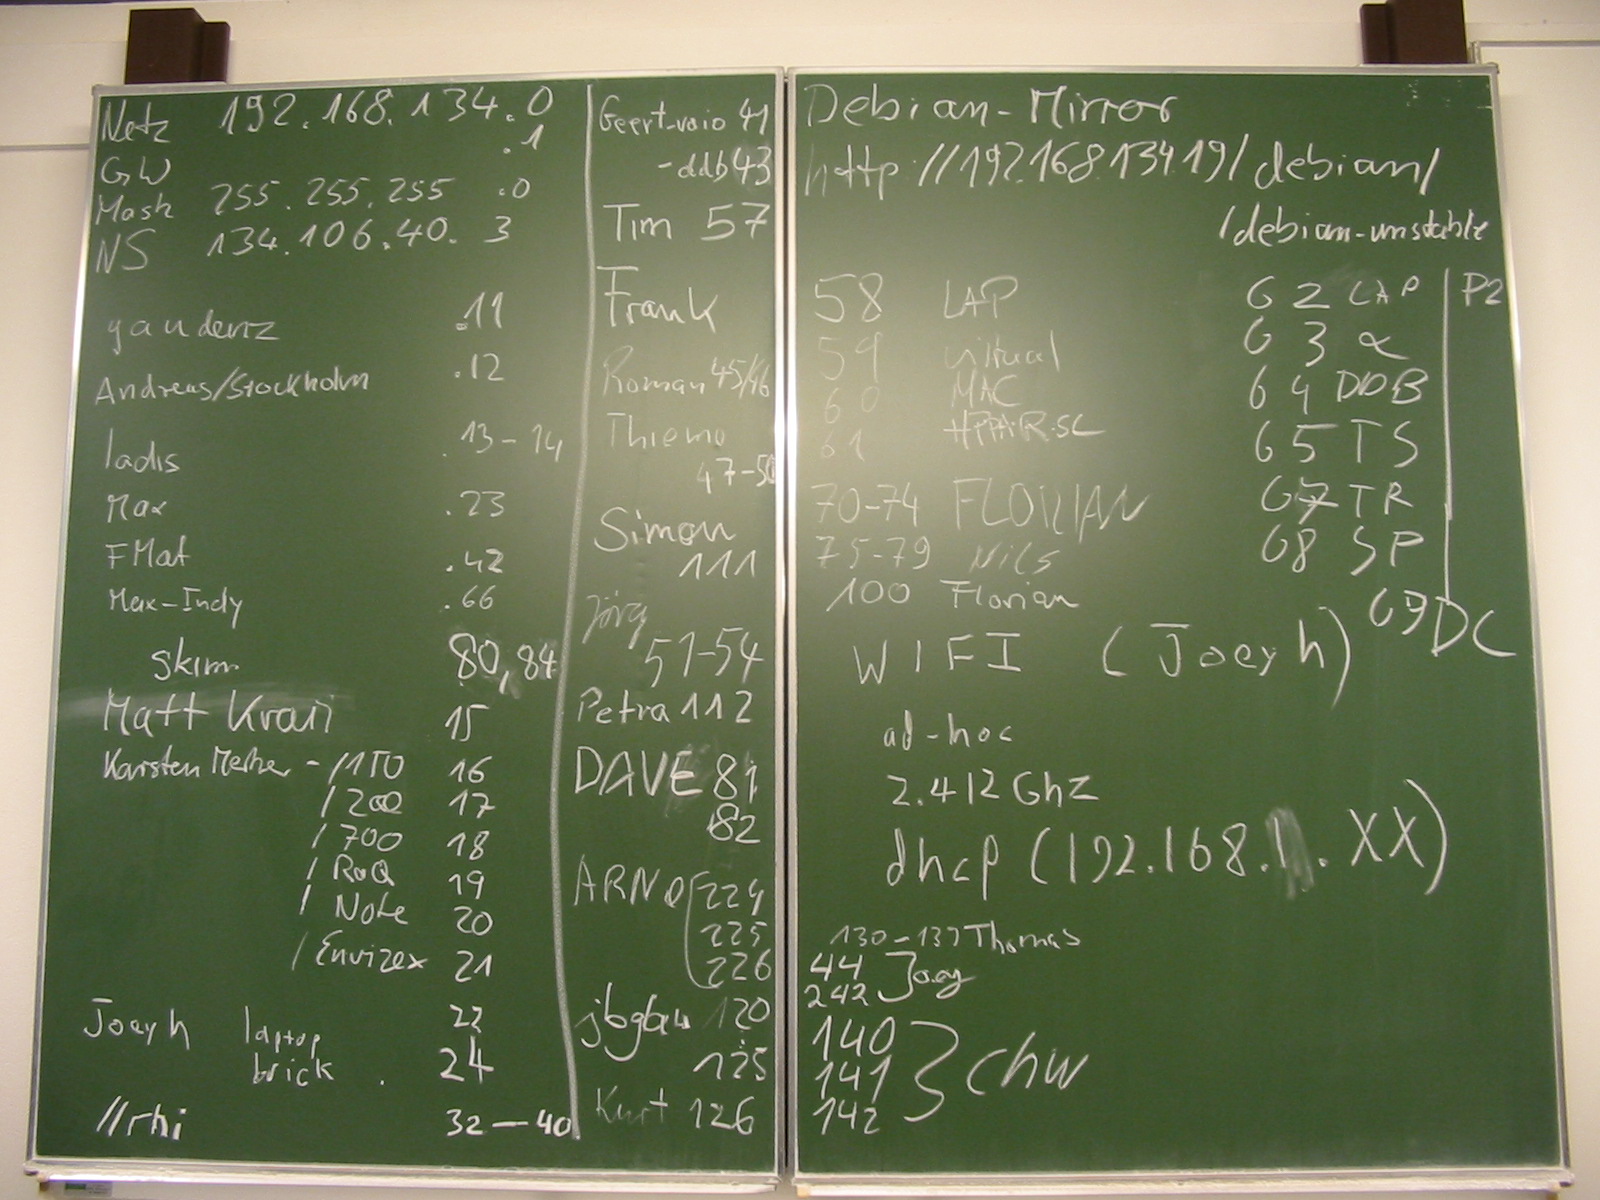 Netz 192.168.134.0
GW .1
Mask 255.255.255 .0
NS 134.106.40. 3
gaudenz .11
Andreas/Stockholm .12
ladis .13-14
Max .23
FMat .42
Max-Indy .66
skim 80,84
Matt Kraii 15
Karsten Merker - /1TO 16
/200 17
/700 18
/RaQ 19
/Note 20
/Envizex 21
Joeyh laptop 22
brick . 24
//rhi 32-40
Geert-vaio 41
-ddb43
Tim 57
Frank
Roman 45/46
Thiemo
47-50
Simon
111
Jörg
51-54
Petra 112
DAVE 81
82
ARNO 224
225
226
jbglaw 120
125
Kurt 126
Debian-Mirror
http://192.168.134.19/debian/
/debian-unstable
58 LAP
59 virtual
60 MAC
61 HPPA/R.SC
70-74 FLORIAN
75-79 Nils
100 Florian
62 LAP P2
63 α
64 DDB
65 TS
67 TR
68 SP
69 DC
WIFI (Joeyh)
ad-hoc
2.412 Ghz
dhcp (192.168.1.XX)
130-137 Thomas
44 Joey
242
140
141 chw
142